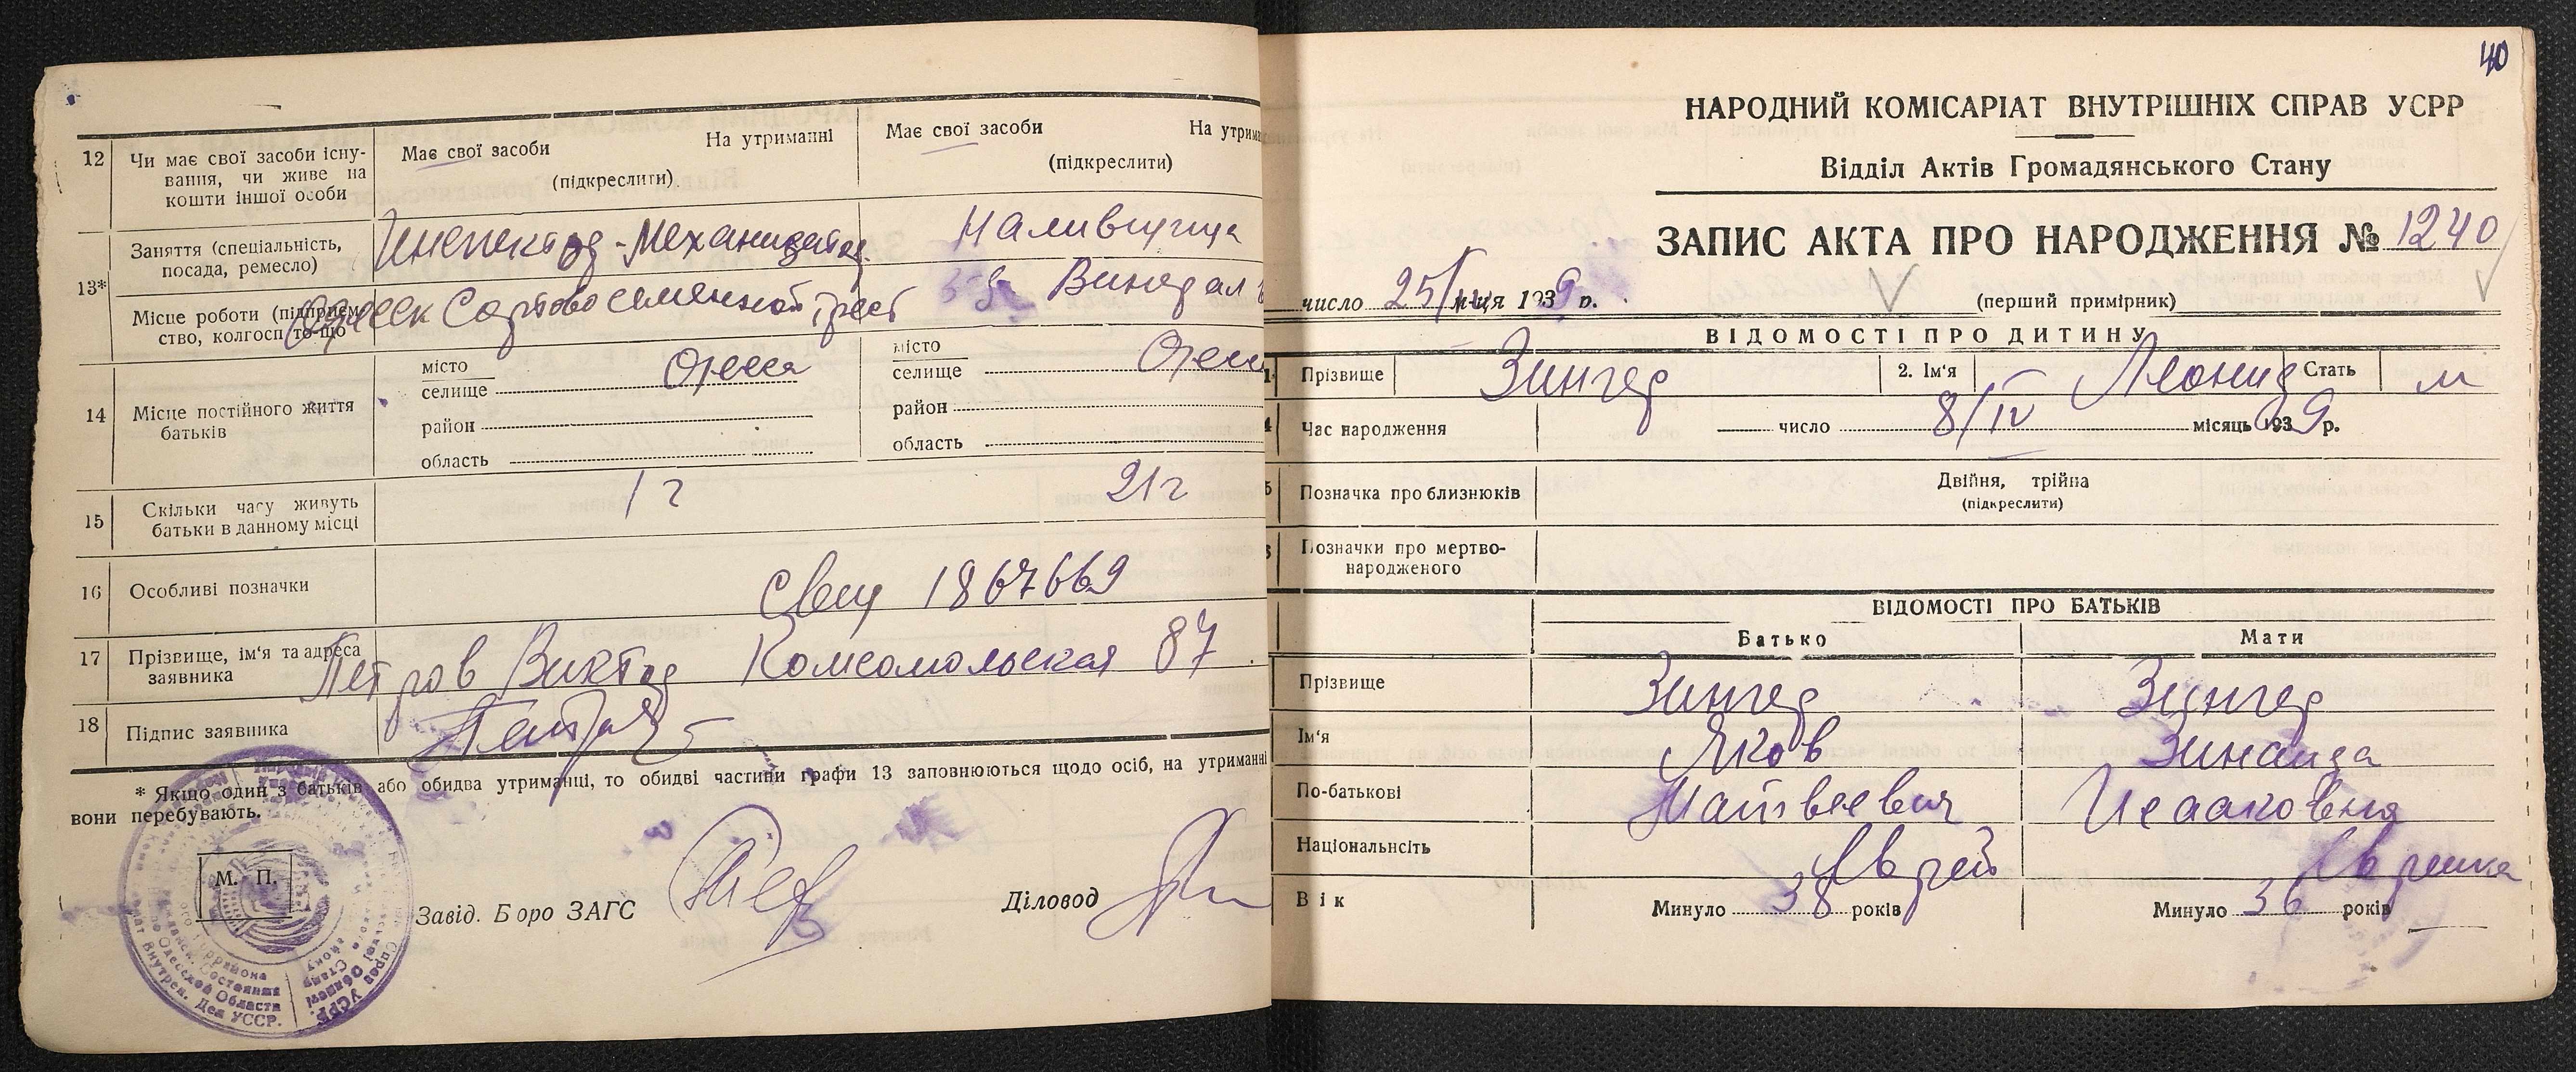 12 Чи має свої засоби існу-
вання, чи живе на
кошти іншої особи
Має свої засоби На утриманні
(підкреслити)
Має свої засоби На утрима
(підкреслити)
13*
Заняття (спеціальність,
посада, ремесло)
Инспектор-Механизатор
Наливщица
Місце роботи (підприєм-
ство, колгосп то-що
Одесск Сортово семенной трест
14 Місце постійного життя
батьків
місто
селище Одесса
район
область
місто
селище Одесс
район
область
15 Скільки часу живуть
батьки в данному місці
1 г
21 г
16 Особливі позначки
Свид 1867669
17 Прізвище, ім'я та адреса
заявника
Петров Виктор Комсомольская 87
18 Підпис заявника
* Якщо один з батьків або обидва утриманці, то обидві частини графи 13 заповнюються щодо осіб, на утриманні
вони перебувають.
М. П.
Завід. Боро ЗАГС
Діловод
40
НАРОДНИЙ КОМІСАРІАТ ВНУТРІШНІХ СПРАВ УСРР
Відділ Актів Громадянського Стану
ЗАПИС АКТА ПРО НАРОДЖЕННЯ № 1240
число 25/IV м-ця 1939 р.
(перший примірник)
ВІДОМОСТІ ПРО ДИТИНУ
1 Прізвище Зингер 2. Ім'я Леонид Стать м
4 Час народження число 8/IV місяць 1939 р.
5 Позначка про близнюків Двійня, трійна
(підкреслити)
Позначки про мертво-
народженого
ВІДОМОСТІ ПРО БАТЬКІВ
Батько Мати
Прізвище Зингер Зингер
Ім'я Яков Зинаида
По-батькові Матвеевич Исааковна
Національнсіть Еврей Еврейка
Вік Минуло 38 років Минуло 36 років